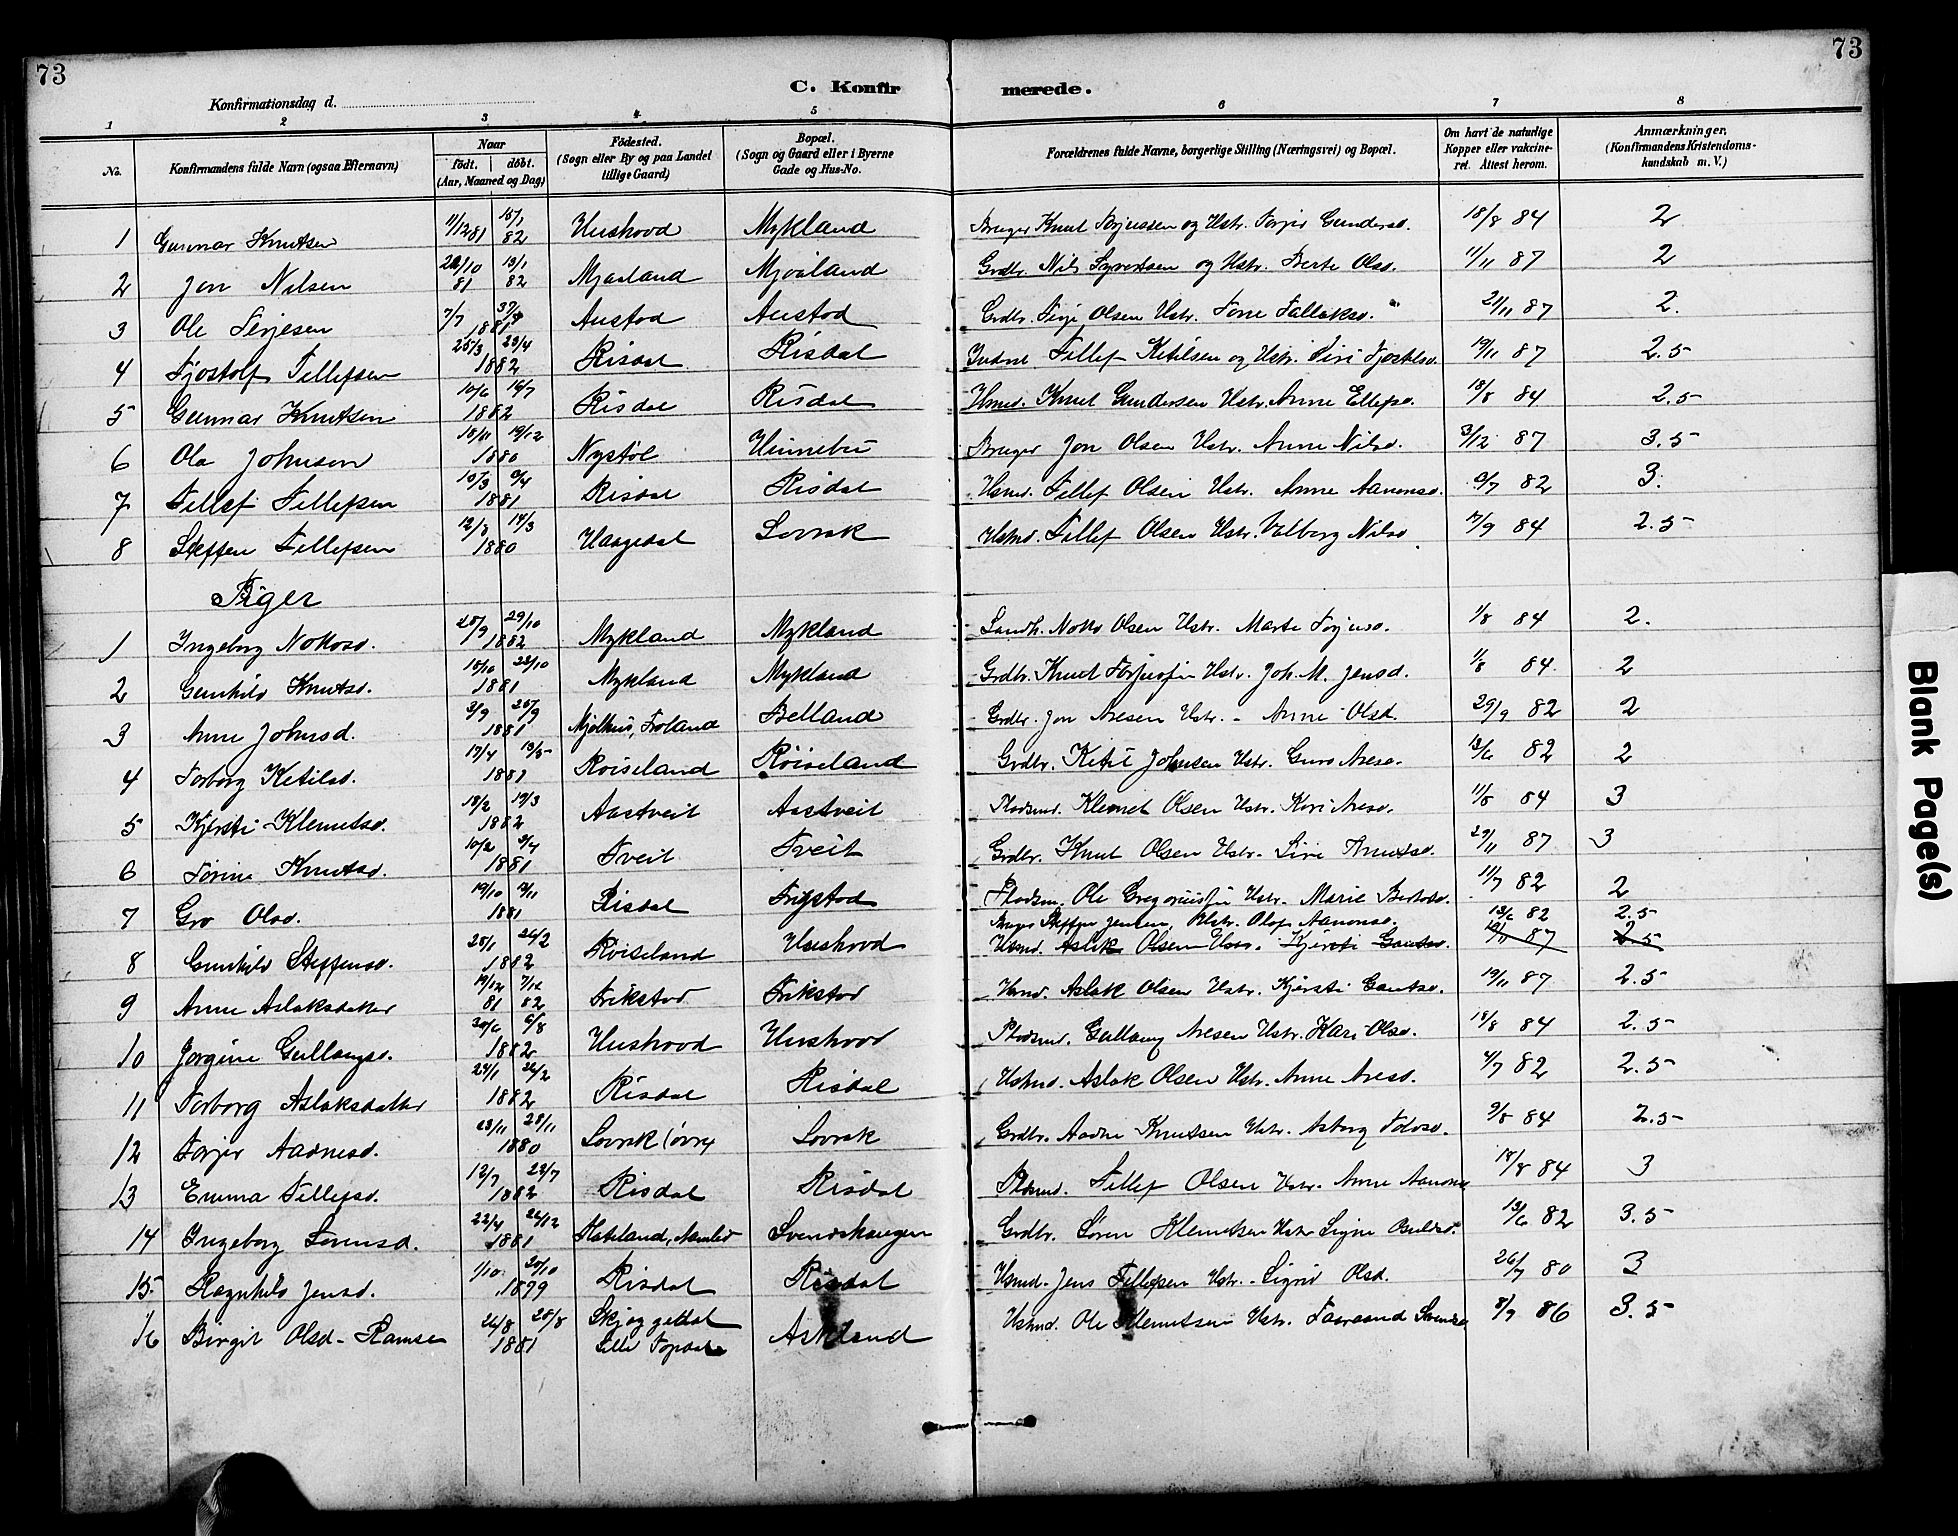 73
73
C. Konfirmerede.
Konfirmationsdag d.
1 2 3 4 5 6 7 8
No. Konfirmandens fulde Navn (ogsaa Efternavn) Naar født. døbt. (Aar, Maaned og Dag) Fødested. (Sogn eller By og paa Landet tillige Gaard) Bopæl. (Sogn og Gaard eller i Byerne Gade og Hus-No. Forældrenes fulde Navne, borgerlige Stilling (Næringsvei) og Bopæl. Om havt de naturlige Kopper eller vakcineret. Attest herom. Anmærkninger. (Konfirmandens Kristendomskundskab m. V.)
1 Gunnar Knutsen 11/12 81 15/1 82 Hushovd Mykland Bruger Knut Torjussen og Hstr. Torjer Gundersd. 18/8 84 2
2 Jon Nilsen 81 13/1 82 Mjaaland Mjaaland Grdbr. Nils Syvertsen og Hstr. Berte Olsd. 11/11 87 2
3 Ole Terjesen 7/7 1881 Austad Austad Grdbr. Terje Olsen Hstr. Tone Tallaksd. 21/11 87 2.
4 Tjostolf Tellefsen 25/3 23/4 1882 Risdal Risdal Tellef Ketilsen og Hstr. Siri 19/11 87 2.5
5 Gunnar Knutsen 10/6 16/7 1882 Risdal Risdal Hsmd. Knut Gundersen Hstr. Anne Ellefsd. 18/8 84 2.5
6 Ola Johnsen 18/11 19/12 1880 Nystøl Hinnebu Bruger Jon Olsen Hstr. Anne Nilsd. 3/12 87 3.5
7 Tellef Tellefsen 10/3 9/4 1881 Risdal Risdal Hsmd. Tellef Olsen Hstr. Anne Aanonsd. 9/7 82 3.
8 Steffen Tellefsen 14/3 1880 Haugedal Lovrak Hsmd. Tellef Olsen Hstr. Valborg Nilsd. 17/9 84 2.5
Piger
1 Ingeborg Nottosd. 28/9 29/10 1882 Mykland Mykland Landh. Notto Olsen Hstr. Marte Torjusd. 1/8 84 2.
2 Gunhild Knutsd. 18/10 23/10 1881 Mykland Mykland Grdbr. Knut Hstr. Joh. M. Jensd. 1/8 84. 2
3 Anne Johnsd. 3/9 25/9 1881 Mjølhus, Froland Belland Grdbr. Jon Aresen Hstr. - Anne Olsd. 29/9 82 2
4 Torborg Ketilsd. 17/4 13/5 1881 Røiseland Røiseland Grdbr. Ketil Johnsen Hstr. Guro Aresd. 13/6 82 2
5 Kjersti Klemetsd. 18/2 19/3 1882 Aastveit Aastveit Pladsmd. Klemet Olsen Hstr. Kari Aresd. 11/8 84 3
6 Torine Knutsd. 10/2 9/4 1881 Tveit Tveit Grdbr. Knut Olsen Hstr. Siri Knutsd. 29/11 87 3
7 Gro Olsd. 19/10 13/11 1881 Risdal Frigstad Pladsm. Ole Hstr. Marie 11/7 82 2
8 Gunhild Steffensd. 25/1 26/2 1882 Røiseland Hushovd Bruger Steffen Jensen, Hstr. Olaf Aanonsd. 13/6 82 2.5
Hsmd. Aslak Olsen Hstr. Kjersti Gautsd. 19/11 87 2.5
9 Anne Aslaksdatter 19/12 81 82 Frikstad Frikstad Hsmd. Aslak Olsen Hstr. Kjersti Gautsd. 19/11 87 2.5
10 Jorgine Gullaugsd. 20/6 6/8 1882 Hushovd Hushovd Pladsmd. Gullaug Aresen Hstr. Kari Olsd. 18/8 84 2.5
11 Torborg Aslaksdatter 24/1 26/2 1882 Risdal Risdal Hsmd. Aslak Olsen Hstr. Anne Aresd. 4/7 82 2.5
12 Torjer Aadnesd. 23/11 28/11 1880 Lovrak (øvre) Lovrak Grdbr. Aadne Knutsen Hstr. Asborg 9/8 84 2.5
13 Emma Tellefsd. 12/7 23/7 1882 Risdal Risdal Pladsmd. Tellef Olsen Hstr. Anne 18/8 84 3
14 Ingeborg Sørensd. 22/4 26/12 1881 Hateland, Svendshaugen Grdbr. Søren Klemetsen Hstr Signe 13/6 82 3.5
15 Ragnhild Jensd. 1/10 20/10 1879 Risdal Risdal Hsmd. Jens Tellefsen Hstr. - Sigrid Olsd. 26/7 80 3
16 Birgit Olsd - Ramse 26/8 28/8 1881 Skjeggedal Lille Topdal Askland Hsmd. Ole Klemetsen Hstr. Taarand 8/9 86 3.5
Blank Page(s)